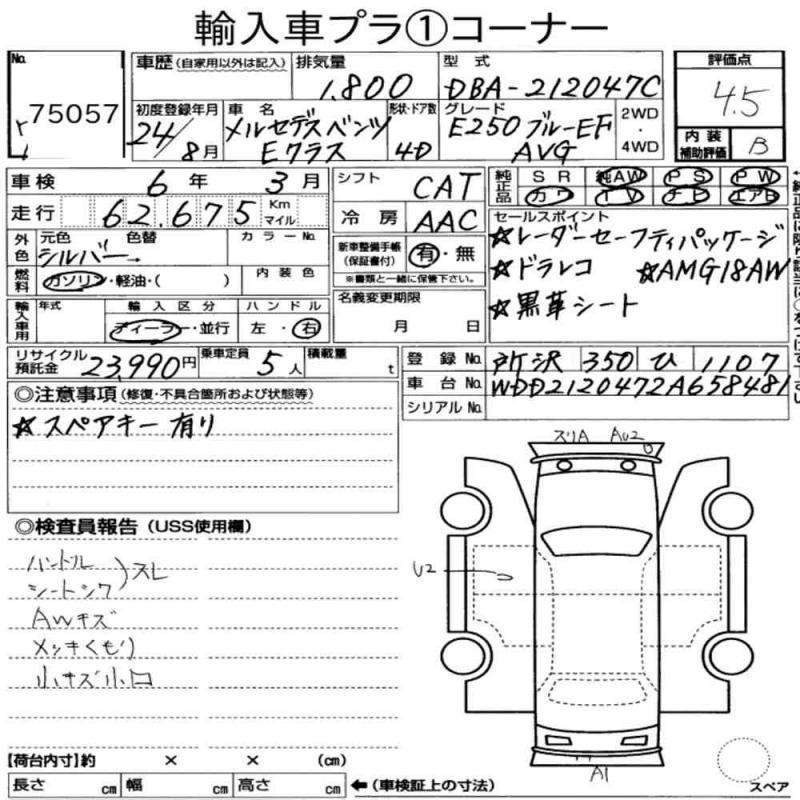 輸入車プラ①コーナー
No.
75057
車歴 (自家用以外は記入)
排気量
1.800
型式
DBA-212047C
評価点
4.5
初度登録年月
24/8月
車名
メルセデスベンツ
Eクラス
形状・ドア数
4D
グレード
E250 ブルーEF
AVG
2WD
・
4WD
内装
補助評価
B
車検 6年 3月
走行 62.675 Km
マイル
シフト CAT
冷房 AAC
純正品 SR 純AW PS PW
カワ TV ナビ エアB
外色 元色 色替
シルバー→
カラーNo.
燃料 ガソリン・軽油・( )
内装色
新車整備手帳
(保証書付) 有・無
※書類と一緒に保管下さい。
セールスポイント
☆レーダーセーフティパッケージ
☆ドラレコ ☆AMG18AW
☆黒革シート
輸入車用 年式
輸入区分
ディーラー・並行
ハンドル
左・右
名義変更期限
月 日
リサイクル
預託金 23,990円
乗車定員 5人
積載量 t
登録No. 所沢 350 ひ 1107
車台No. WDD2120472A658481
シリアルNo.
◎注意事項 (修復・不具合箇所および状態等)
☆スペアキー有り
◎検査員報告 (USS使用欄)
ハンドル
シートシワ )スレ
AWキズ
メッキくもり
小キズ小凹
ズリA AU2
U2
A1
スペア
【荷台内寸】約 × × (cm)
長さ cm 幅 cm 高さ cm
←(車検証上の寸法)